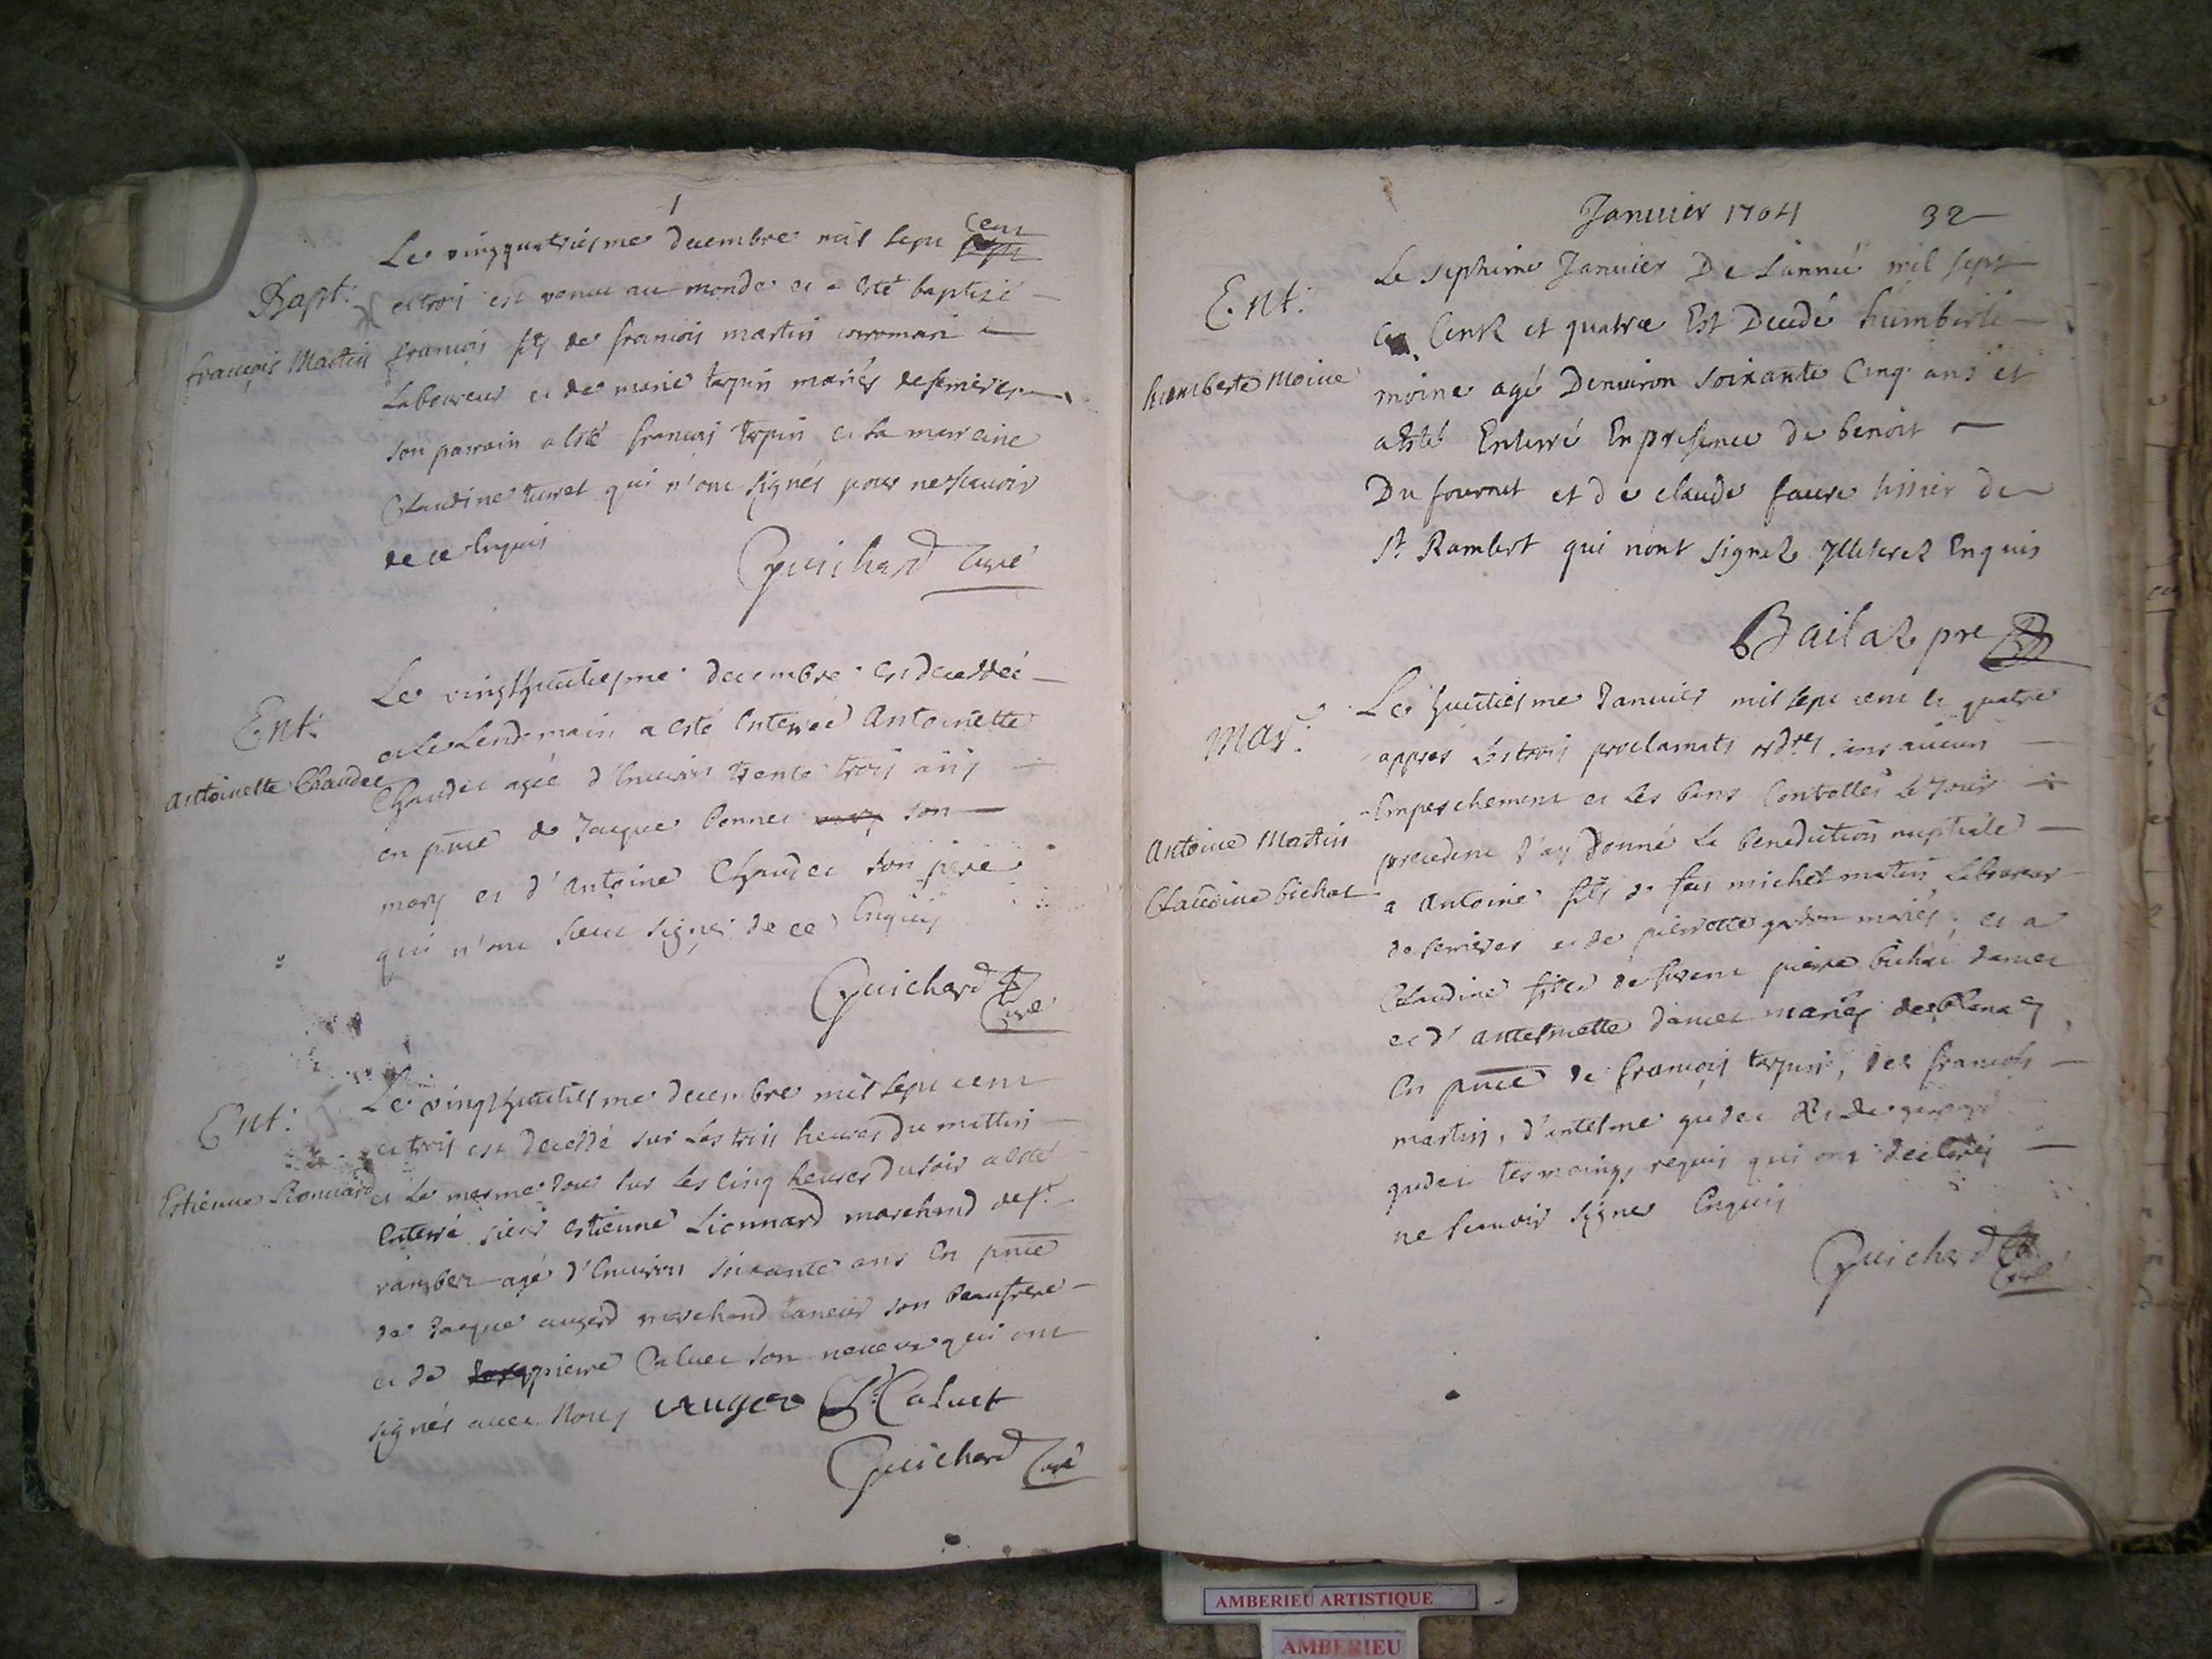 Le vingquatriesme decembre mil sept Cent
Bapt.
et trois est venu au monde et a esté baptizé
françois Martin
francois fils de francois martin
Laboureur et de marie tarpin mariés de serrieres
son parrain a esté francois tarpin et sa marreine
Claudine turret qui n'ont signés pour ne scavoir
de ce Enquis
Guichard Curé
Le vingthuitiesme decembre est decedée
Ent.
et le Lendemain a esté Enterrée Antoinette
Antoinette Chaudet
Chaudet agée d'Environ trente trois ans
en pnce de Jacque bonnet son
mary et d'Antoine Chaudet son pere
qui n'ont sceu signé de ce Enquis
Guichard Curé
Le vingthuitiesme decembre mil sept cent
Ent.
et trois est decedé sur Les trois heures du mattin
Estienne Lionnard
et Le mesme Jour sur Les Cinq heures du soir a esté
Enterré sieur estienne Lionnard marchand de st
rambert agé d'Environ soixante ans En pnce
de Jacque augerd marchand taneur son beaufrere
et de pierre Caluet son neueux qui ont
signés auec Nous Auger Caluet
Guichard Curé
Januier 1704 32
Le septieme Januier De Lanneé mil sept
Ent.
Cent et quatre Est Decedé humberte
humberte Moine
moine agé Denuiron soixante Cinq ans et
a esté Enterré En presence de benoit
Du fournet et de claude faure tissier de
st Rambert qui nont signez Illiterez Enquis
Bailat pre
Le huitiesme Januier mil sept cent et quatre
Mar.
appres Les trois proclamats ordres sans aucun
Empeschement et Les bans Controllés Le Jour
Antoine Martin
precedent J'ay donné La benediction nuptiale
Claudine bichat
a Antoine fils de feu michel martin Laboureur
de serrieres et de pierrette mariés, et a
Claudine fille de pierre bichat
et d'antelmette mariés
En pnce de francois tarpin, de francois
martin, d'antelme gudet et de
gudet tesmoings requis qui ont declarés
ne scauoir signer Enquis
Guichard Curé
AMBERIEU ARTISTIQUE
AMBERIEU